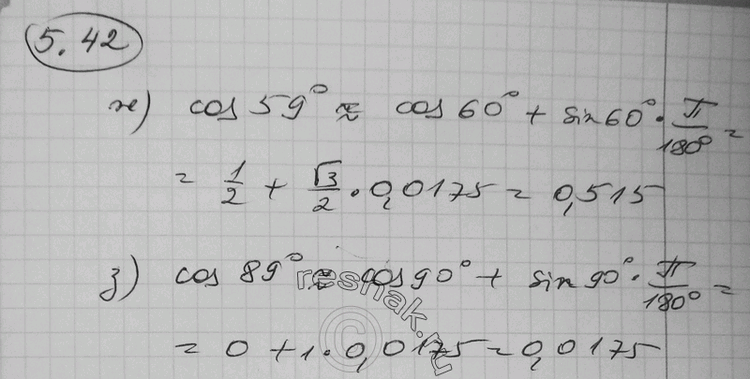 5.42
ж) cos 59° ≈ cos 60° + sin 60° · π/180° =
= 1/2 + √3/2 · 0,0175 = 0,515
з) cos 89° ≈ cos 90° + sin 90° · π/180° =
= 0 + 1 · 0,0175 = 0,0175
reshak.ru